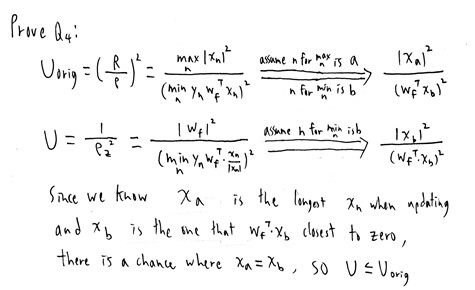 Prove Q4:
U_orig = (R/ρ)² = max_n |x_n|² / (min_n y_n w_f^T x_n)² assume n for max_n is a / n for min_n is b → |x_a|² / (w_f^T x_b)²
U = 1/ρ_z² = |w_f|² / (min_n y_n w_f^T · x_n/|x_n|)² assume n for min_n is b → |x_b|² / (w_f^T · x_b)²
Since we know x_a is the longest x_n when updating
and x_b is the one that w_f^T · x_b closest to zero,
there is a chance where x_a = x_b, so U ≤ U_orig